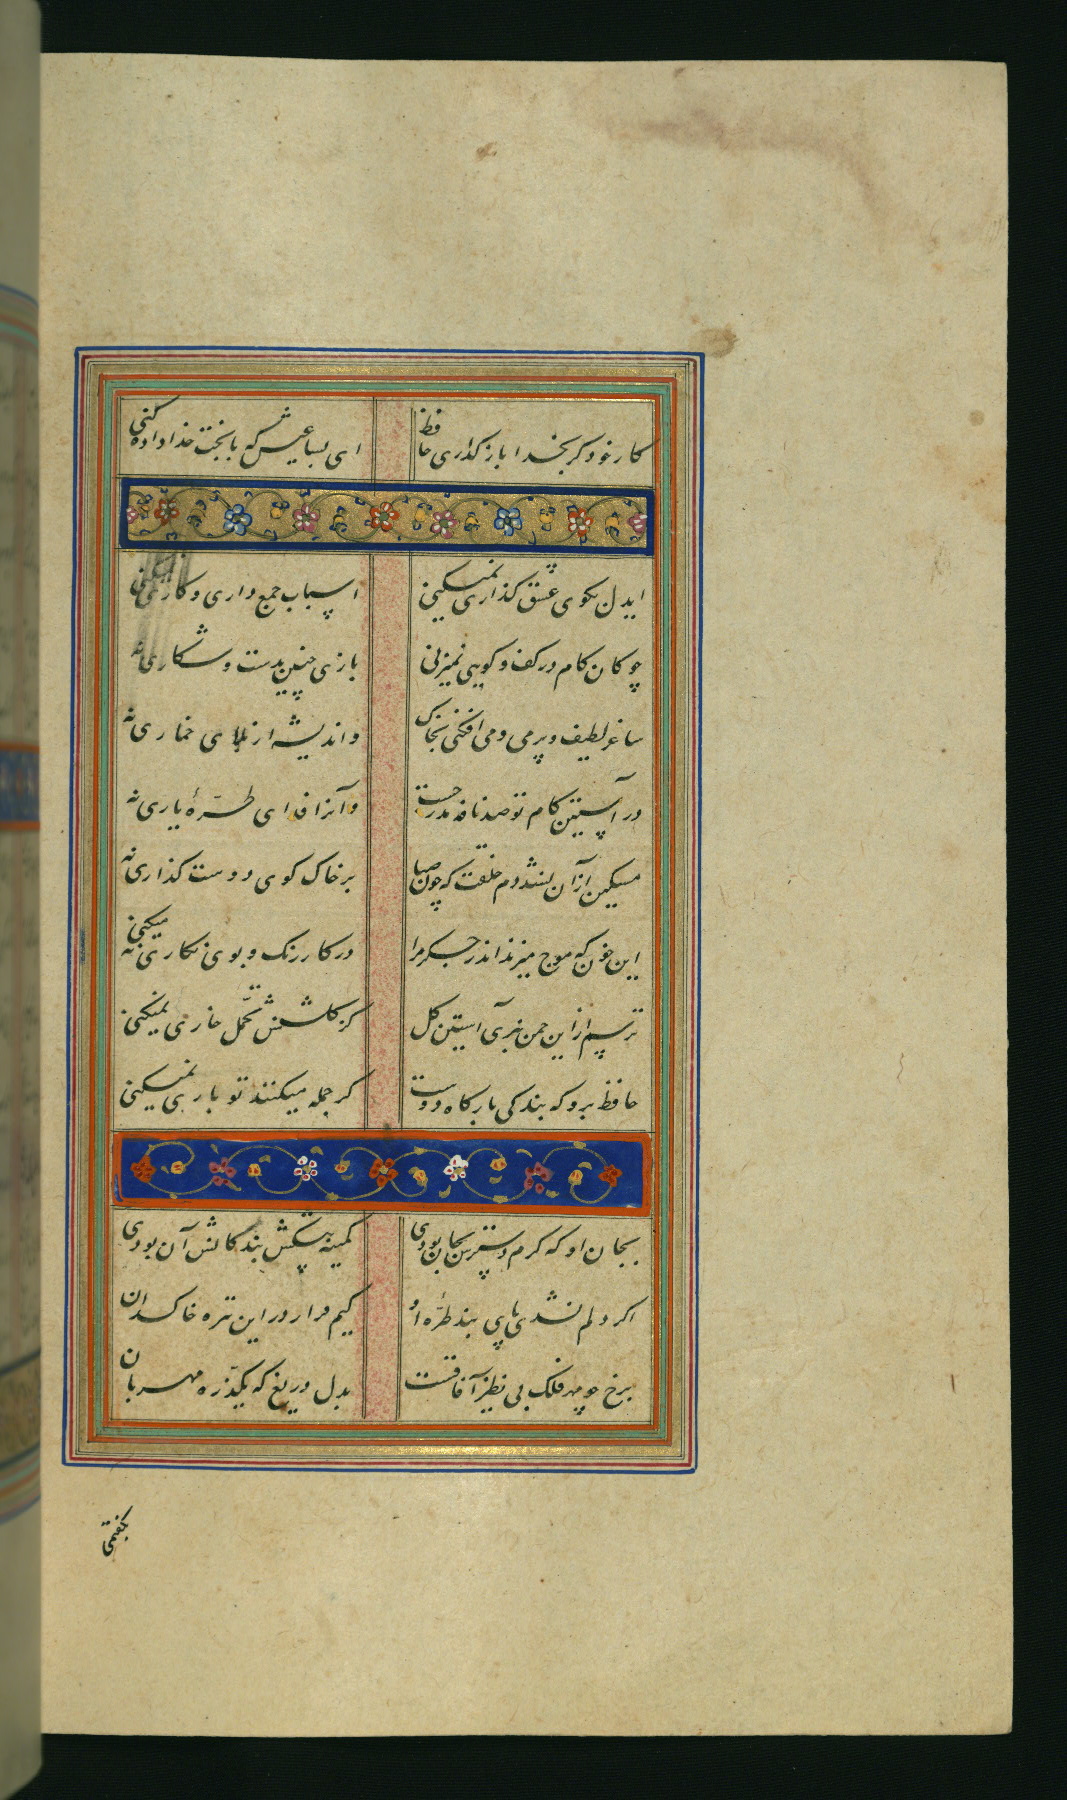 کار خود کر بخدا باز کذاری حافظ ای بسا عیش که با بخت خداداده کنی
ایدل بکوی عشق کذاری نمیکنی اسباب جمع داری و کاری نمیکنی
چوکان کام در کف و کویی نمیزنی بازی چنین بدست و شکاری نه
ساغر لطیف و پر می و می افکنی بخاک و اندیشه از بلای خماری نه
در آستین کام تو صد نافه مدرجست و آنرا فدای طرّهٔ یاری نه
مسکین از آن نشد دم خلقت که چون صبا بر خاک کوی دوست کذاری نه
این خون که موج میزند اندر جکر مرا در کار رنک و بوی نکاری نه میکنی
ترسم از این چمن نبری آستین کل کز کلشنش تحمّل خاری نمیکنی
حافظ برو که بندکی بارکاه دوست کر جمله میکنند تو باری نمیکنی
بجان او که کرم دسترس بجان بودی کمینه پیشکش بندکانش آن بودی
اکر دلم نشدی پای بند طرّه او کیم قرار در این تیره خاکدان
برخ چو مهر فلک بی نظیر آفاقست بدل دریغ که یکذّره مهربان
بکفتمی